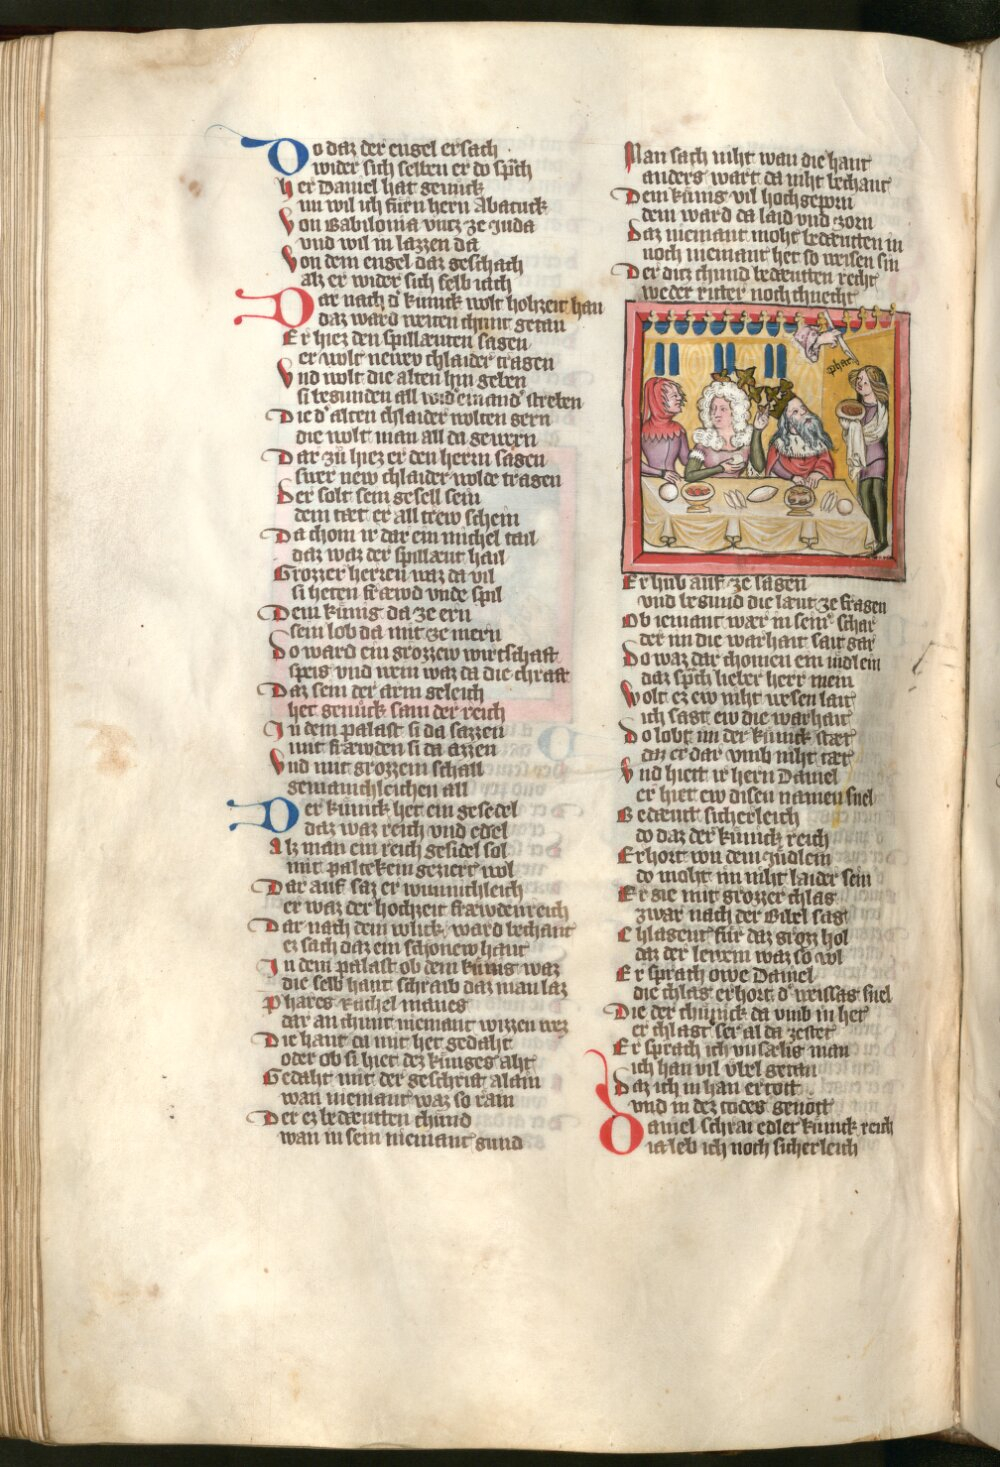 Do daz der engel ersach
wider sich selben er do sp̄ch
her Daniel hat genuͦck
nu wil ich fuͤrn hern Abacuck
Von Babilonia vntz ze Juda
vnd wil in lazzen da
Von dem engel daz geschach
alz er wider sich selb iach
Dar nach d᾽ kuͤnick wolt hohzeit han
daz ward weiten chunt getan
Er hiez den spillaͤuten sagen
er wolt newev chlaider tragen
Vnd wolt die alten hin geben
si begunden all wid᾽einand᾽ streben
Die d᾽ alten chlaider wolten gern
die wolt man all da gewern
Dar zuͤ hiez er den herrn sagen
swer new chlaider wolde tragen
Der solt sein gesell sein
dem taͤt er all trew schein
Da chom ir dar ein michel tail
daz waz der spillaͤut hail
Grozzer herren waz da vil
si heten fraͤwd vnde spil
Dem kuͤnig da ze ern
sein lob da mit ze mern
Do ward ein grozzew wirtschaft
speis vnd wein waz da die chraft
Daz sein der arm geleich
het genuͦck sam der reich
In dem palast si da sazzen
mit fraͤwden si da azzen
Vnd mit grozzem schall
gemainchleichen all
Der kuͤnick het ein gesedel
daz waz reich vnd edel
Alz man ein reich gesidel sol
mit paltekein geziert wol
Dar auf saz er wunnichleich
er waz der hochzeit fraͤwdenreich
Dar nach dem wlick ward bechant
er sach daz ein schonew hant
In dem palast ob dem kuͤnig waz
die selb hant schraib daz man laz
Phares Rachel manes
dar an chunt niemant wizzen wez
Die hant da mit het gedaht
oder ob si hiet dez kuͤniges aht
Gedaht mit der geschrift alain
wan niemant waz so rain
Der ez bedaͤutten chund
wan in sein niemant gund
Man sach niht wan die hant
anders wart da niht bechant
Dem kuͤnig vil hoch geporn
dem ward da laid vnd zorn
Daz niemant moht bedaͤutten in
noch niemant het so weisen sin
Der ditz chund bedaͤutten recht
weder ritter noch chnecht
phares
Er hub auf ze sagen
vnd begund die laͤut ze fragen
Ob iemant waͤr in sein᾽ schar
der im die warhait sait gar
Do waz dar chomen ein iudlein
daz sp̄ch lieber herr mein
Wolt ez ew niht wesen lait
ich sagt ew die warhait
Do lobt im der kuͤnick staͤt
daz er dar vmb niht taͤt
Vnd hiett ir hern Daniel
er hiet ew disen namen snel
Bedaͤut sicherleich
do daz der kuͤnick reich
Erhort von dem iudlein
do moht im niht laider sein
Er sie mit grozzer chlag
zwar nach der Bibel sag
Chlagent fuͤr daz grozz hol
daz der lewem waz so vol
Er sprach owe Daniel
die chlag erhort d᾽ weissag snel
Die der chuͤnick da vmb in het
er chlagt ser al da ze stet
Er sprach ich vnsaͤlig man
ich han vil vbel getan
Daz ich in han ertott
vnd in dez todes genott
Daniel schrai edler kuͤnick reich
ia leb ich noch sicherleich